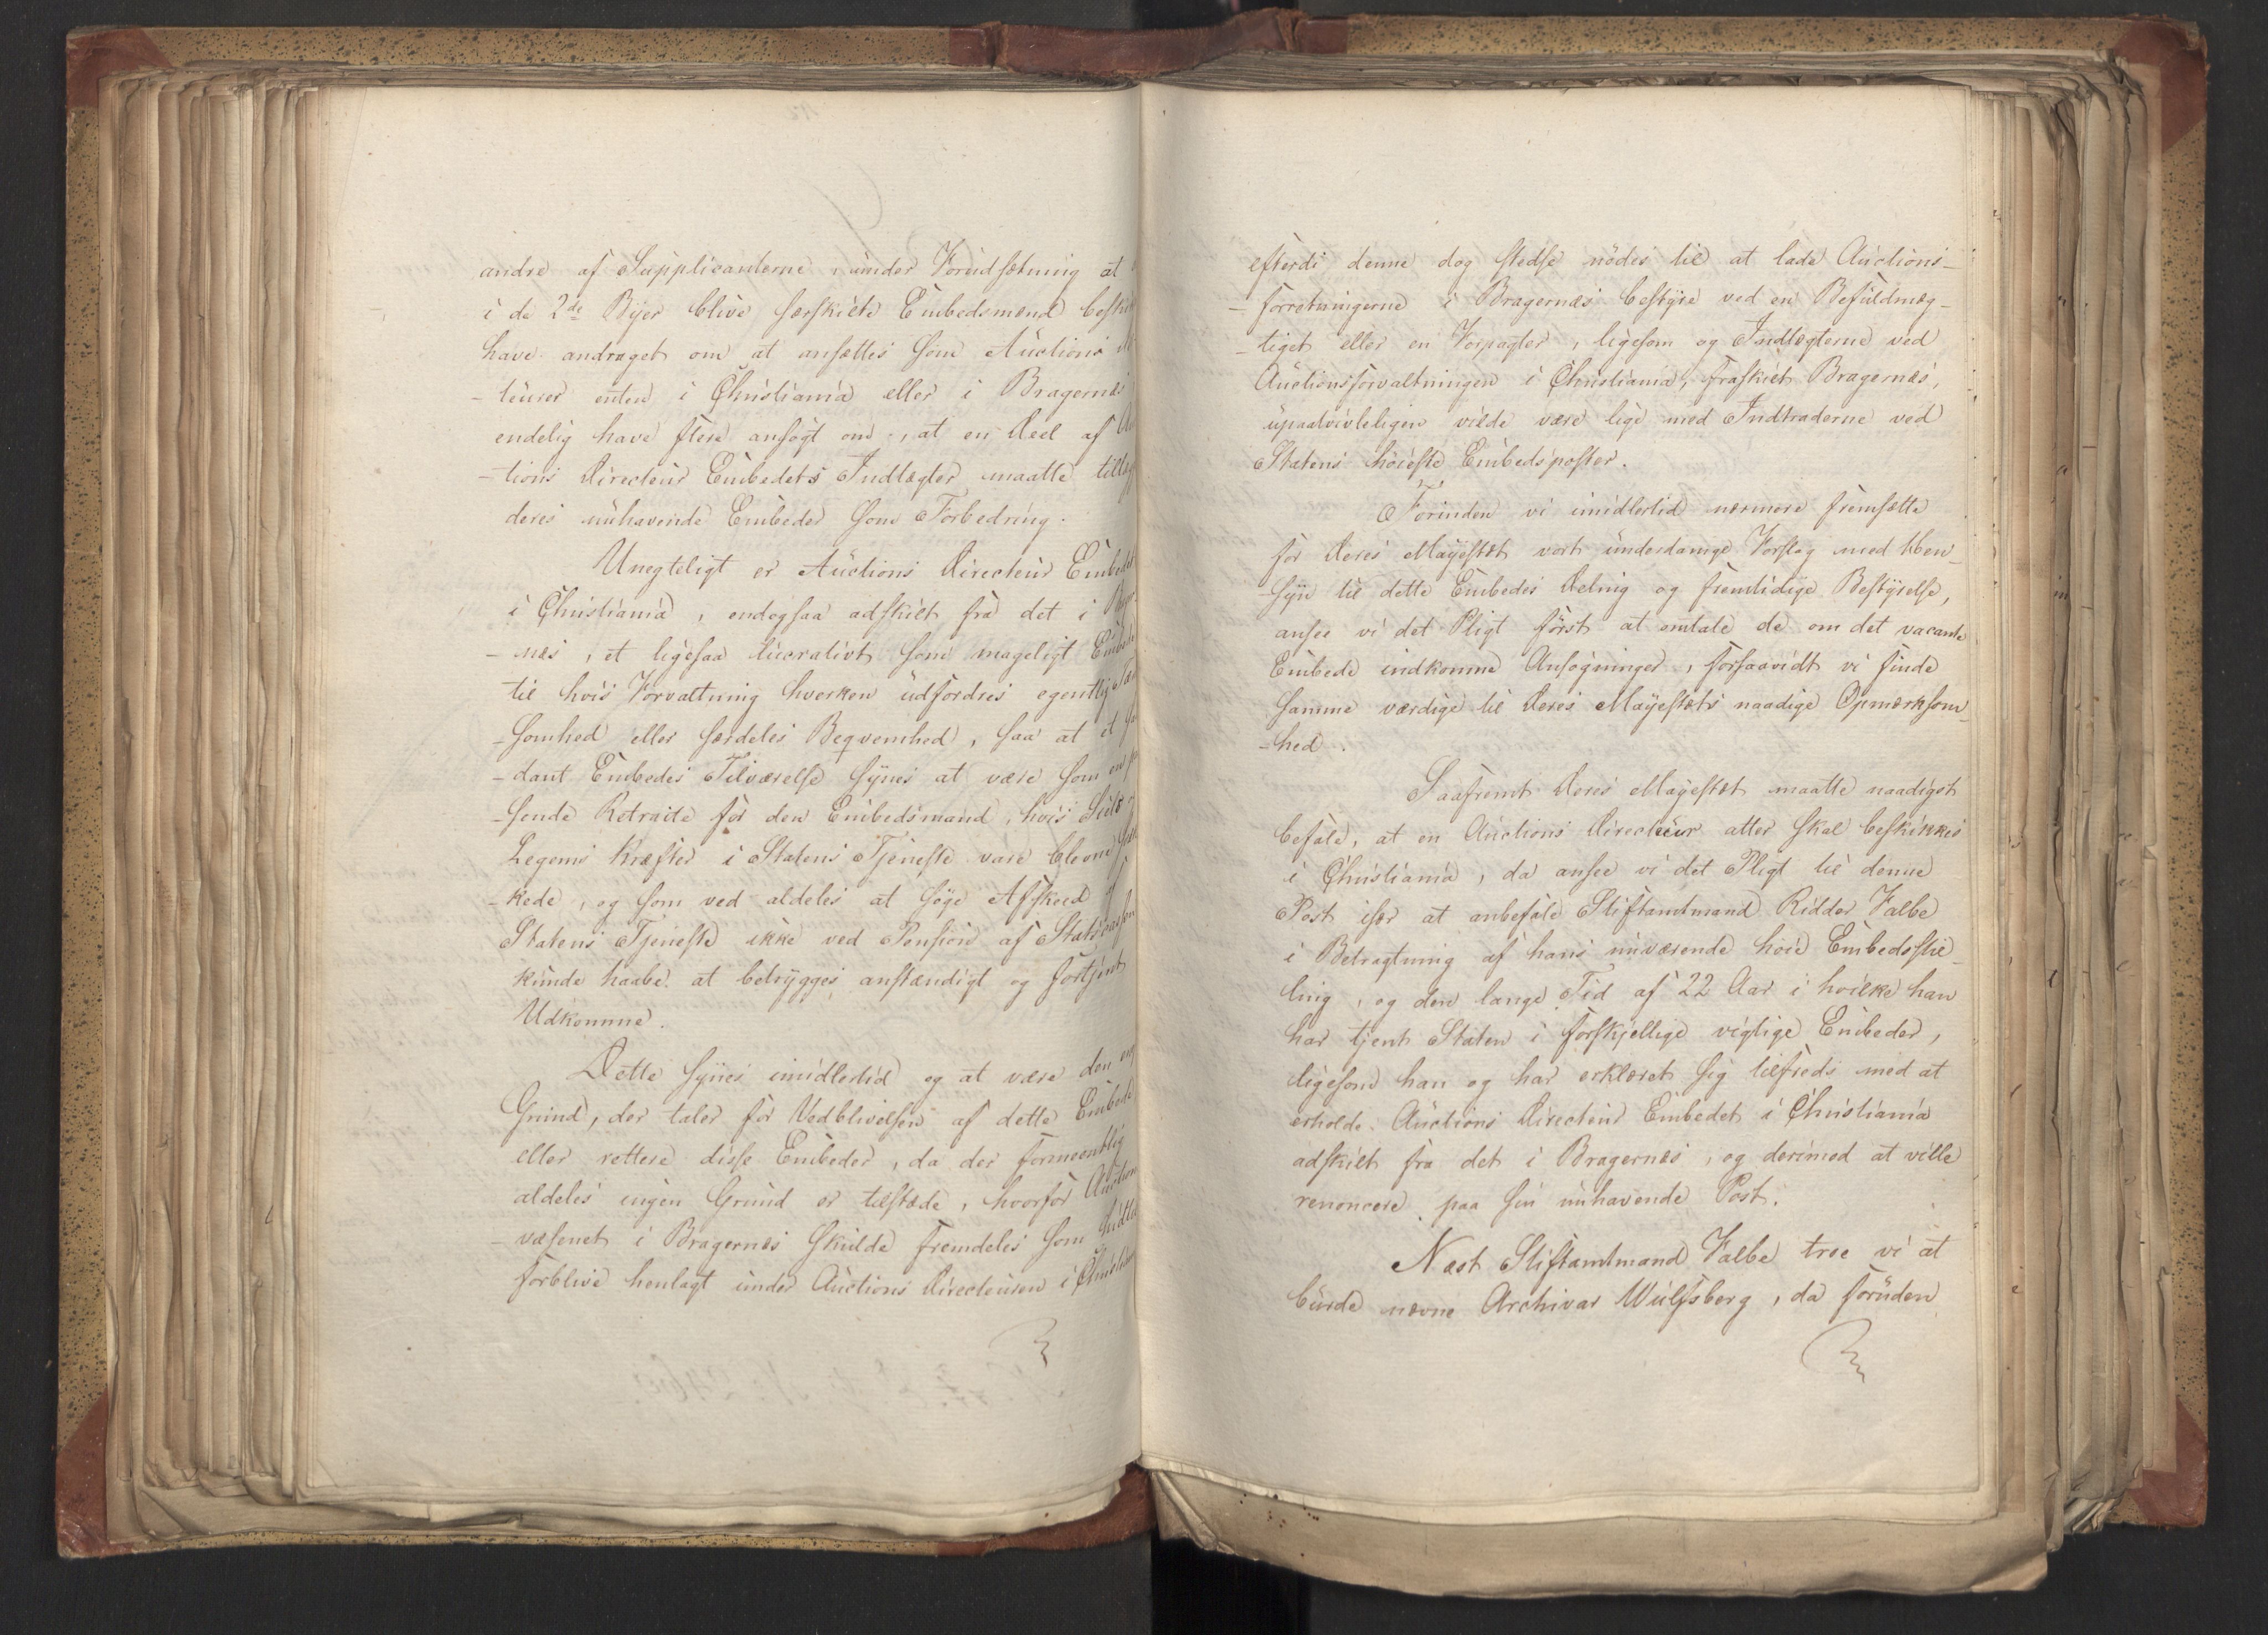 andre af Supplicanterne, under Forudsætning at
i de 2de Byer blive særskilte Embedsmænd
have andraget om at ansættes som Auctions
-teurer enten i Christiania eller i Bragernæs
endelig have flere ansøgt om, at en Deel af
-tions Directeur Embedets Indtægter maatte
deres nuhavende Embeder som Forbedring.
Unegteligt er Auctions Directeur Embedet
i Christiania, endogsaa adskilt fra det i
-næs, et ligesaa lucrativt som mageligt
til hvis Forvaltning hverken udfordres egentlig
-somhed eller særdeles Beqvemhed, saa at et
-dant Embedes Tilværelse synes at være som en
-sende Retraite for den Embedsmand, hvis
Legems Kræfter i Statens Tjeneste vare blevne
-kede, og som ved aldeles at søge Afskeed af
Statens Tjeneste ikke ved Pension af Statscassen
kunde haabe at betrygges anstændigt og fortjent
Udkomme.
Dette synes imidlertid og at være den
Grund, der taler for Vedblivelsen af dette Embede
eller rettere disse Embeder, da der formeentlig
aldeles ingen Grund er tilstæde, hvorfor Auctions
-væsenet i Bragernæs skulde fremdeles som hidtil
forblive henlagt under Auctions Directeuren i
efterdi denne dog stedse nödes til at lade Auctions-
-forretningerne i Bragernæs bestyre ved en Befuldmæg-
-tiget eller en Forpagter, ligesom og Indtægterne ved
Auctionsforvaltningen i Christiania, fraskilt Bragernæs,
upaatvivleligen vilde være lige med Indtraderne ved
Statens höieste Embedsposter.
Forinden vi imidlertid nærmere fremsætte
for Deres Mayestæt vort underdanige Forslag med Hen-
-syn til dette Embedes Deling og fremtidige Bestyrelse,
ansee vi det Pligt först at omtale de om det vacante
Embede indkomne Ansøgninger, forsaavidt vi finde
samme værdige til Deres Mayestæts naadige Opmærksom-
-hed.
Saafremt Deres Mayestæt maatte naadigst
befale, at en Auctions Directeur atter skal beskikkes
i Christiania, da ansee vi det Pligt til denne
Post især at anbefale Stiftamtmand Ridder Falbe
i Betragtning af hans nuværende höie Embedsstil-
ling, og den lange Tid af 22 Aar i hvilke han
har tjent Staten i forskjellige vigtige Embeder,
ligesom han og har erklæret sig tilfreds med at
erholde Auctions Directeur Embedet i Christiania
adskilt fra det i Bragernæs, og derimod at ville
renoncere paa sin nuhavende Post.
Næst Stiftamtmand Falbe troe vi at
burde nævne Archivar Wulfsberg, da foruden